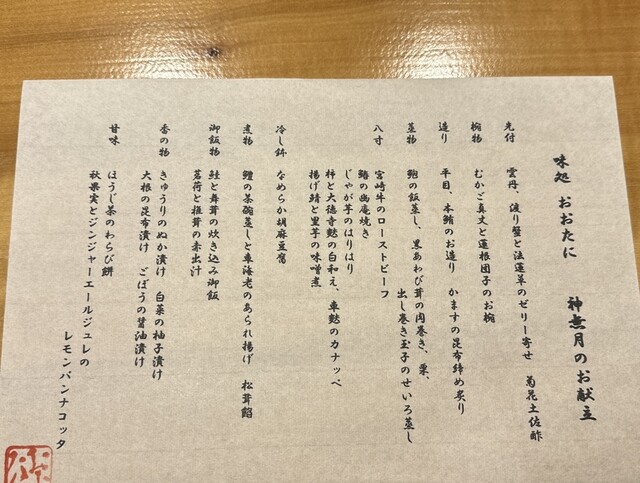 味処 おおたに 神無月のお献立
先付 雲丹、渡り蟹と法蓮草のゼリー寄せ 菊花土佐酢
椀物 むかご真丈と蓮根団子のお椀
造り 平目、本鮪のお造り かますの昆布締め炙り
蒸物 鮑の飯蒸し、黒あわび茸の肉巻き、栗、
出し巻き玉子のせいろ蒸し
八寸 宮崎牛のローストビーフ
鰆の幽庵焼き
じゃが芋のはりはり
柿と大徳寺麩の白和え、車麩のカナッペ
揚げ鯖と里芋の味噌煮
冷し鉢 なめらか胡麻豆腐
煮物 鱧の茶碗蒸しと車海老のあられ揚げ 松茸餡
御飯物 鮭と舞茸の炊き込み御飯
茗荷と椎茸の赤出汁
香の物 きゅうりのぬか漬け 白菜の柚子漬け
大根の昆布漬け ごぼうの醤油漬け
甘味 ほうじ茶のわらび餅
秋果実とジンジャーエールジュレの
レモンパンナコッタ